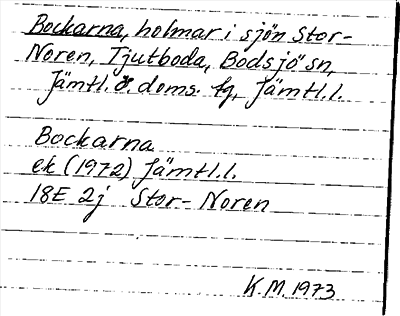 Bockarna, holmar i sjön Stor-
Noren, Tjutboda, Bodsjö sn,
Jämtl. ö. doms. tg, Jämtl.l.
Bockarna
ek (1972) Jämtl.l.
18E 2j Stor-Noren
K.M. 1973